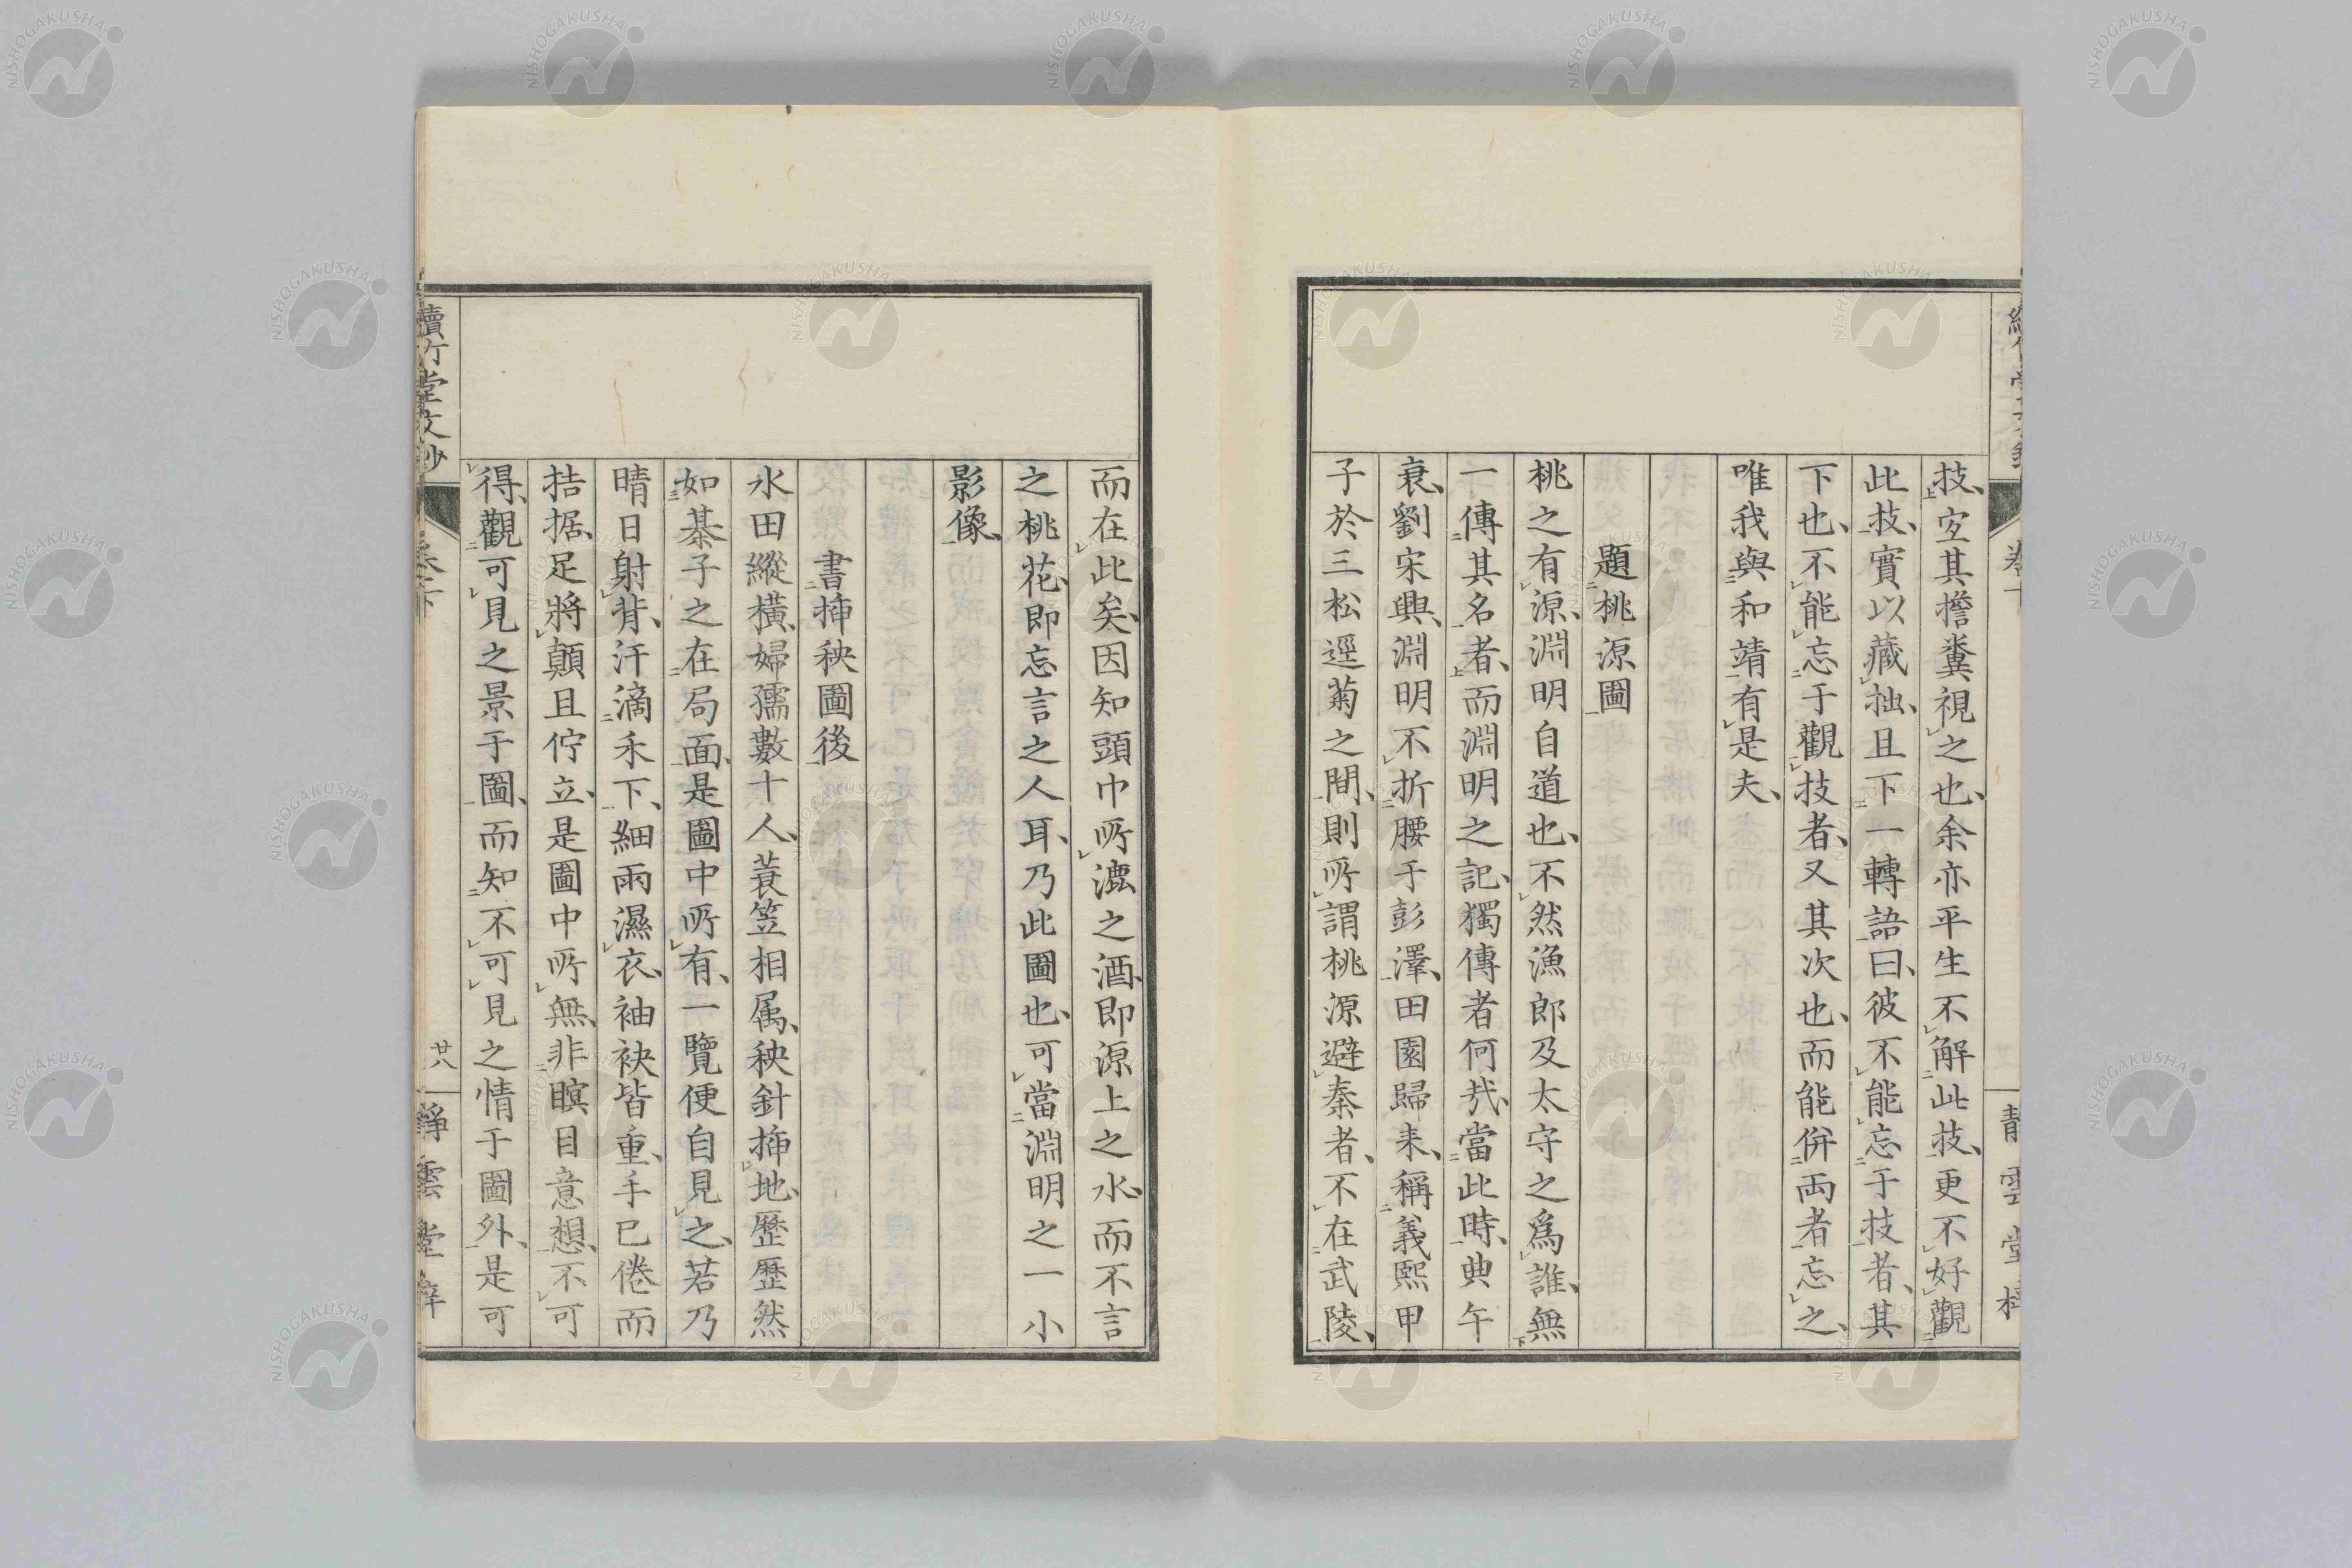 技、宜其擔糞視之也、余亦平生不解此技、更不好觀
此技、實以藏拙、且下一轉語曰、彼不能忘于技者、其
下也、不能忘于觀技者、又其次也、而能併兩者忘之、
唯我與和靖有是夫、
題桃源圖
桃之有源、淵明自道也、不然漁郎及太守之爲誰、無
一傳其名者、而淵明之記、獨傳者何哉、當此時、典午
衰、劉宋興、淵明不折腰于彭澤、田園歸来、稱義熙甲
子於三松逕菊之間、則所謂桃源避秦者、不在武陵、
而在此矣、因知頭巾所漉之酒、即源上之水、而不言
之桃花、即忘言之人耳、乃此圖也、可當淵明之一小
影像、
書揷秧圖後
水田縱橫、婦孺數十人、蓑笠相属、秧針揷地、歷歷然
如棊子之在局面、是圖中所有、一覽便自見之、若乃
晴日射背、汗滴禾下、細雨濕衣、袖袂皆重、手已倦而
拮据、足將顛且佇立、是圖中所無、非瞑目意想、不可
得、觀可見之景于圖、而知不可見之情于圖外、是可
續竹堂文鈔
廿八
靜雲堂梓